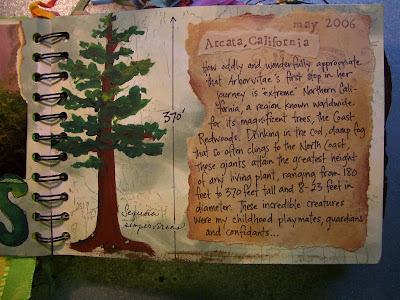 may 2006
Arcata, California
370'
How oddly and wonderfully appropriate
that Arborvitae's first stop in her
journey is "extreme" Northern Cali-
fornia, a region known worldwide
for its magnificent trees, the Coast
Redwoods. Drinking in the cool, damp fog
that so often clings to the North Coast,
these giants attain the greatest height
of any living plant, ranging from 180
feet to 370 feet tall and 8-23 feet in
diameter. These incredible creatures
were my childhood playmates, guardians
and confidants...
Sequoia
sempervirens
S